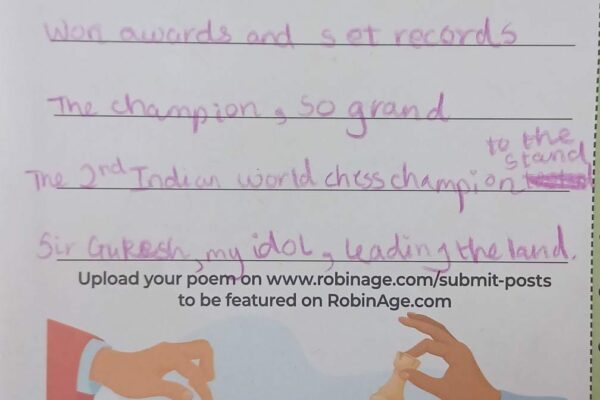 Won awards and set records
The champion, so grand
The 2nd Indian world chess champion to the stand,
Sir Gukesh, my idol, leading the land.
Upload your poem on www.robinage.com/submit-posts
to be featured on RobinAge.com